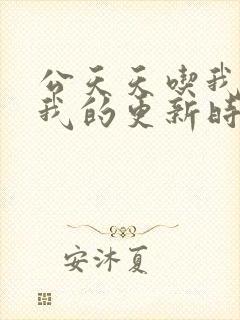 公天天喫我
我的更新時
安沐夏